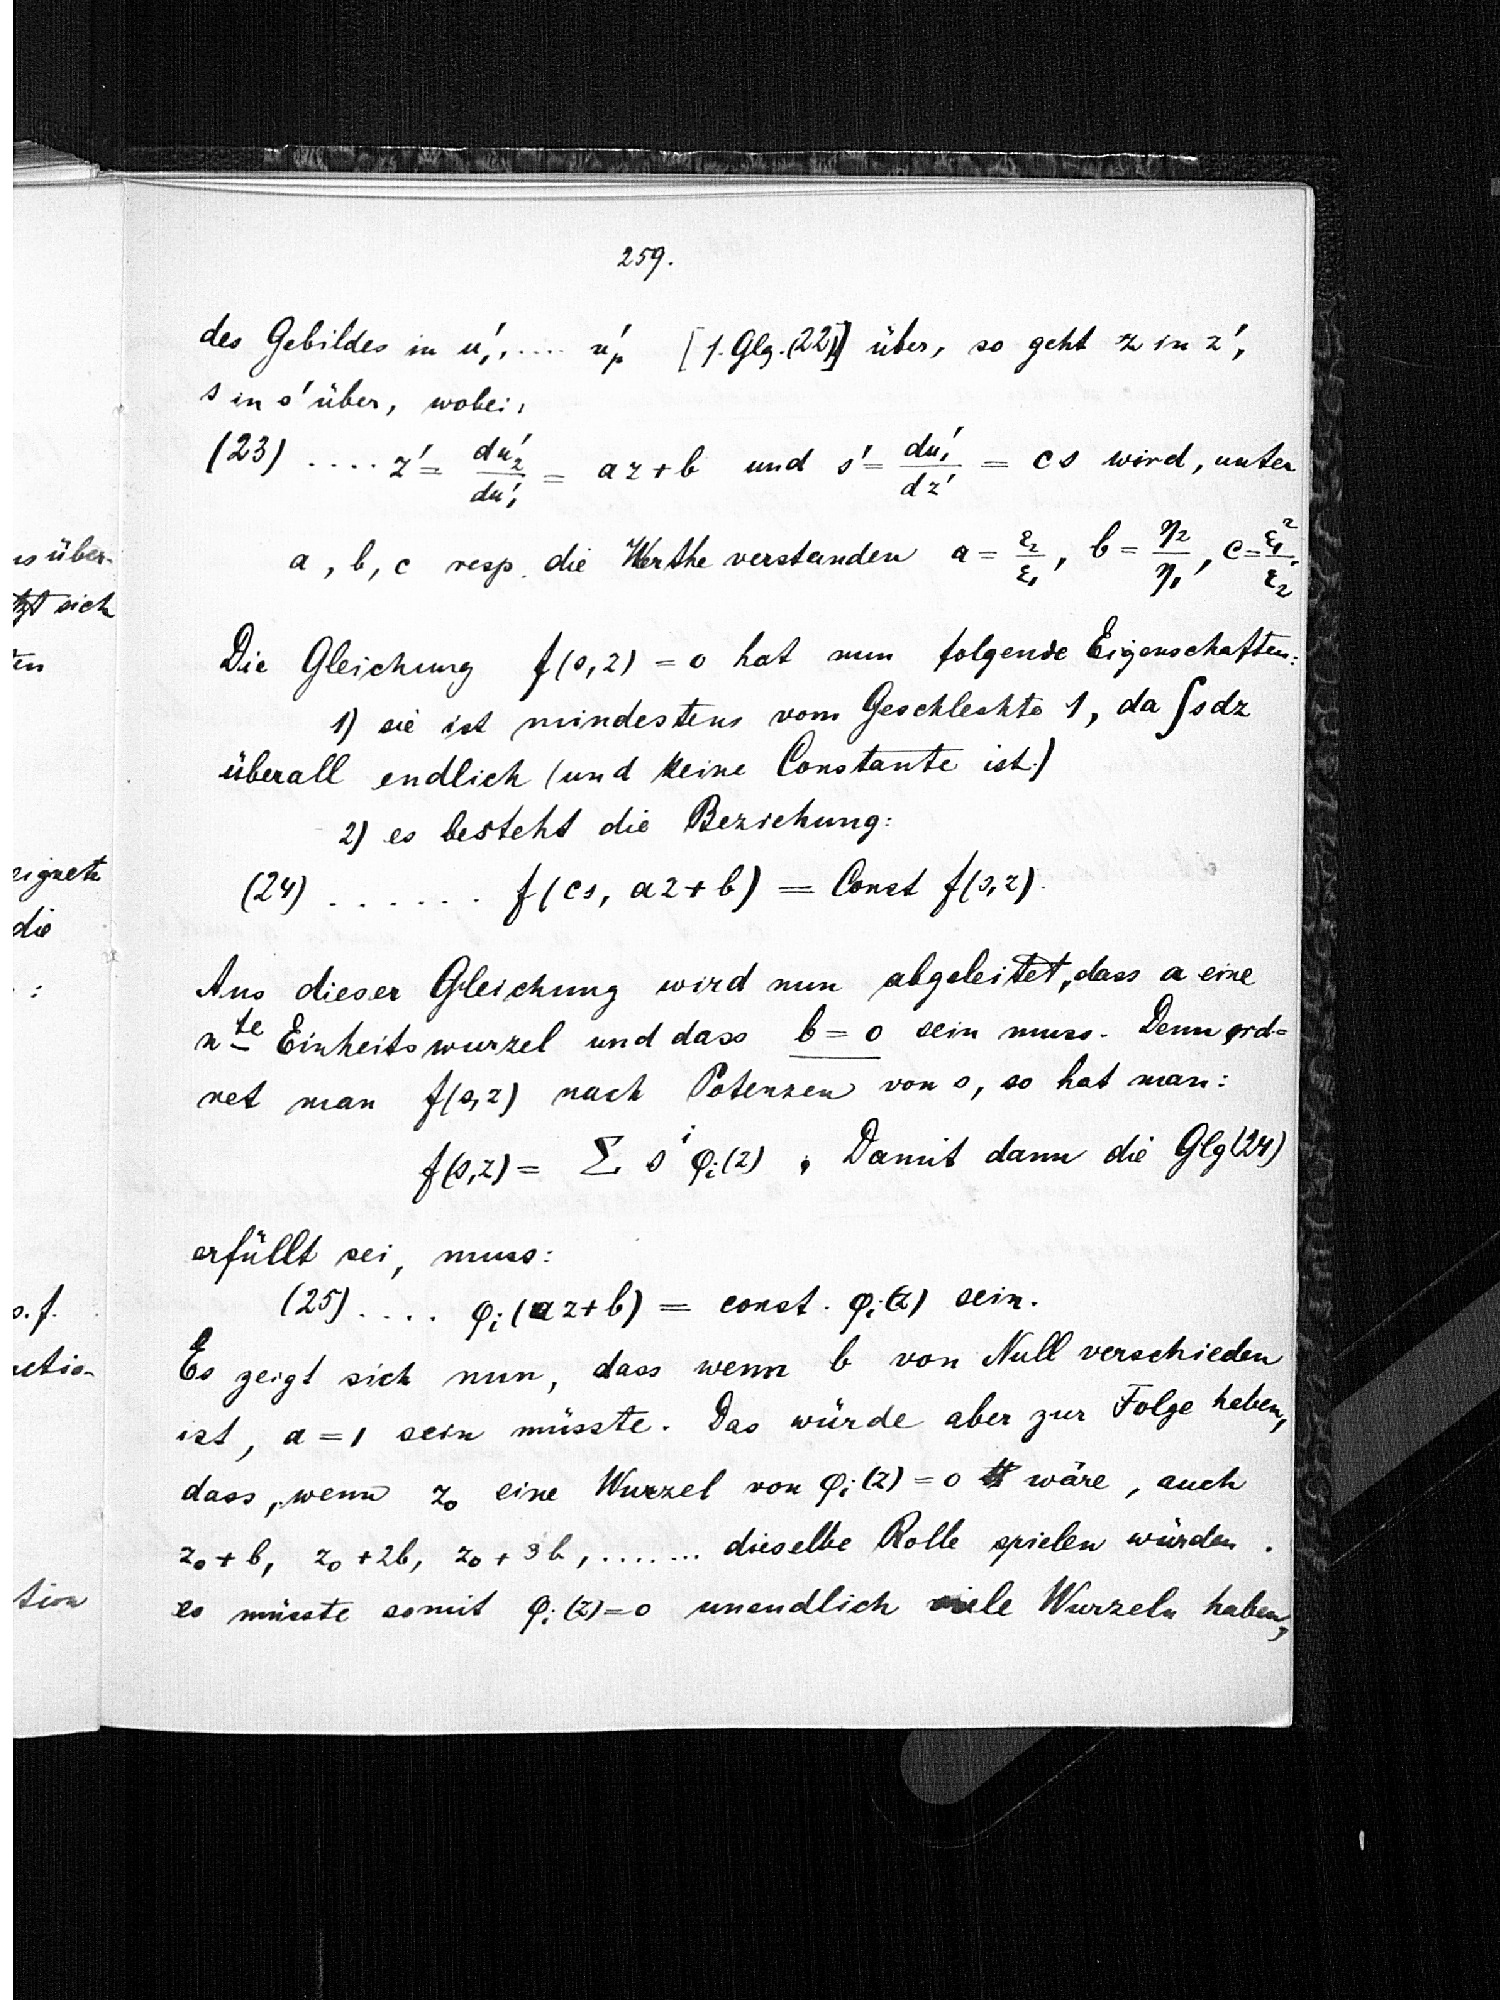 259.
des Gebildes in u₁',.... u'ₚ [1. Glg. (22)] über, so geht z in z',
s in s' über, wobei,
(23) .... z' = du₂'/du₁' = az + b und s' = du₁'/dz' = cs wird, unter
a, b, c resp. die Werthe verstanden a = ε₂/ε₁, b = η₂/η₁, c = ε₁²/ε₂.
Die Gleichung f(s,z) = 0 hat nun folgende Eigenschaften:
1) sie ist mindestens vom Geschlechte 1, da ∫sdz
überall endlich (und keine Constante ist.)
2) es besteht die Beziehung:
(24) ...... f(cs, az + b) = Const f(s,z).
Aus dieser Gleichung wird nun abgeleitet, dass a eine
nte Einheitswurzel und dass b = 0 sein muss. Denn ord=
net man f(s,z) nach Potenzen von s, so hat man:
f(s,z) = Σ sⁱ φᵢ(z). Damit dann die Glg (24)
erfüllt sei, muss:
(25) .... φᵢ(az + b) = const. φᵢ(z) sein.
Es zeigt sich nun, dass wenn b von Null verschieden
ist, a = 1 sein müsste. Das würde aber zur Folge haben,
dass, wenn z₀ eine Wurzel von φᵢ(z) = 0 wäre, auch
z₀ + b, z₀ + 2b, z₀ + 3b, ....... dieselbe Rolle spielen würden.
es müsste somit φᵢ(z) = 0 unendlich viele Wurzeln haben,
us über-
tzt sich
ten
eignete
die
:
s.f.
nctio-
tion